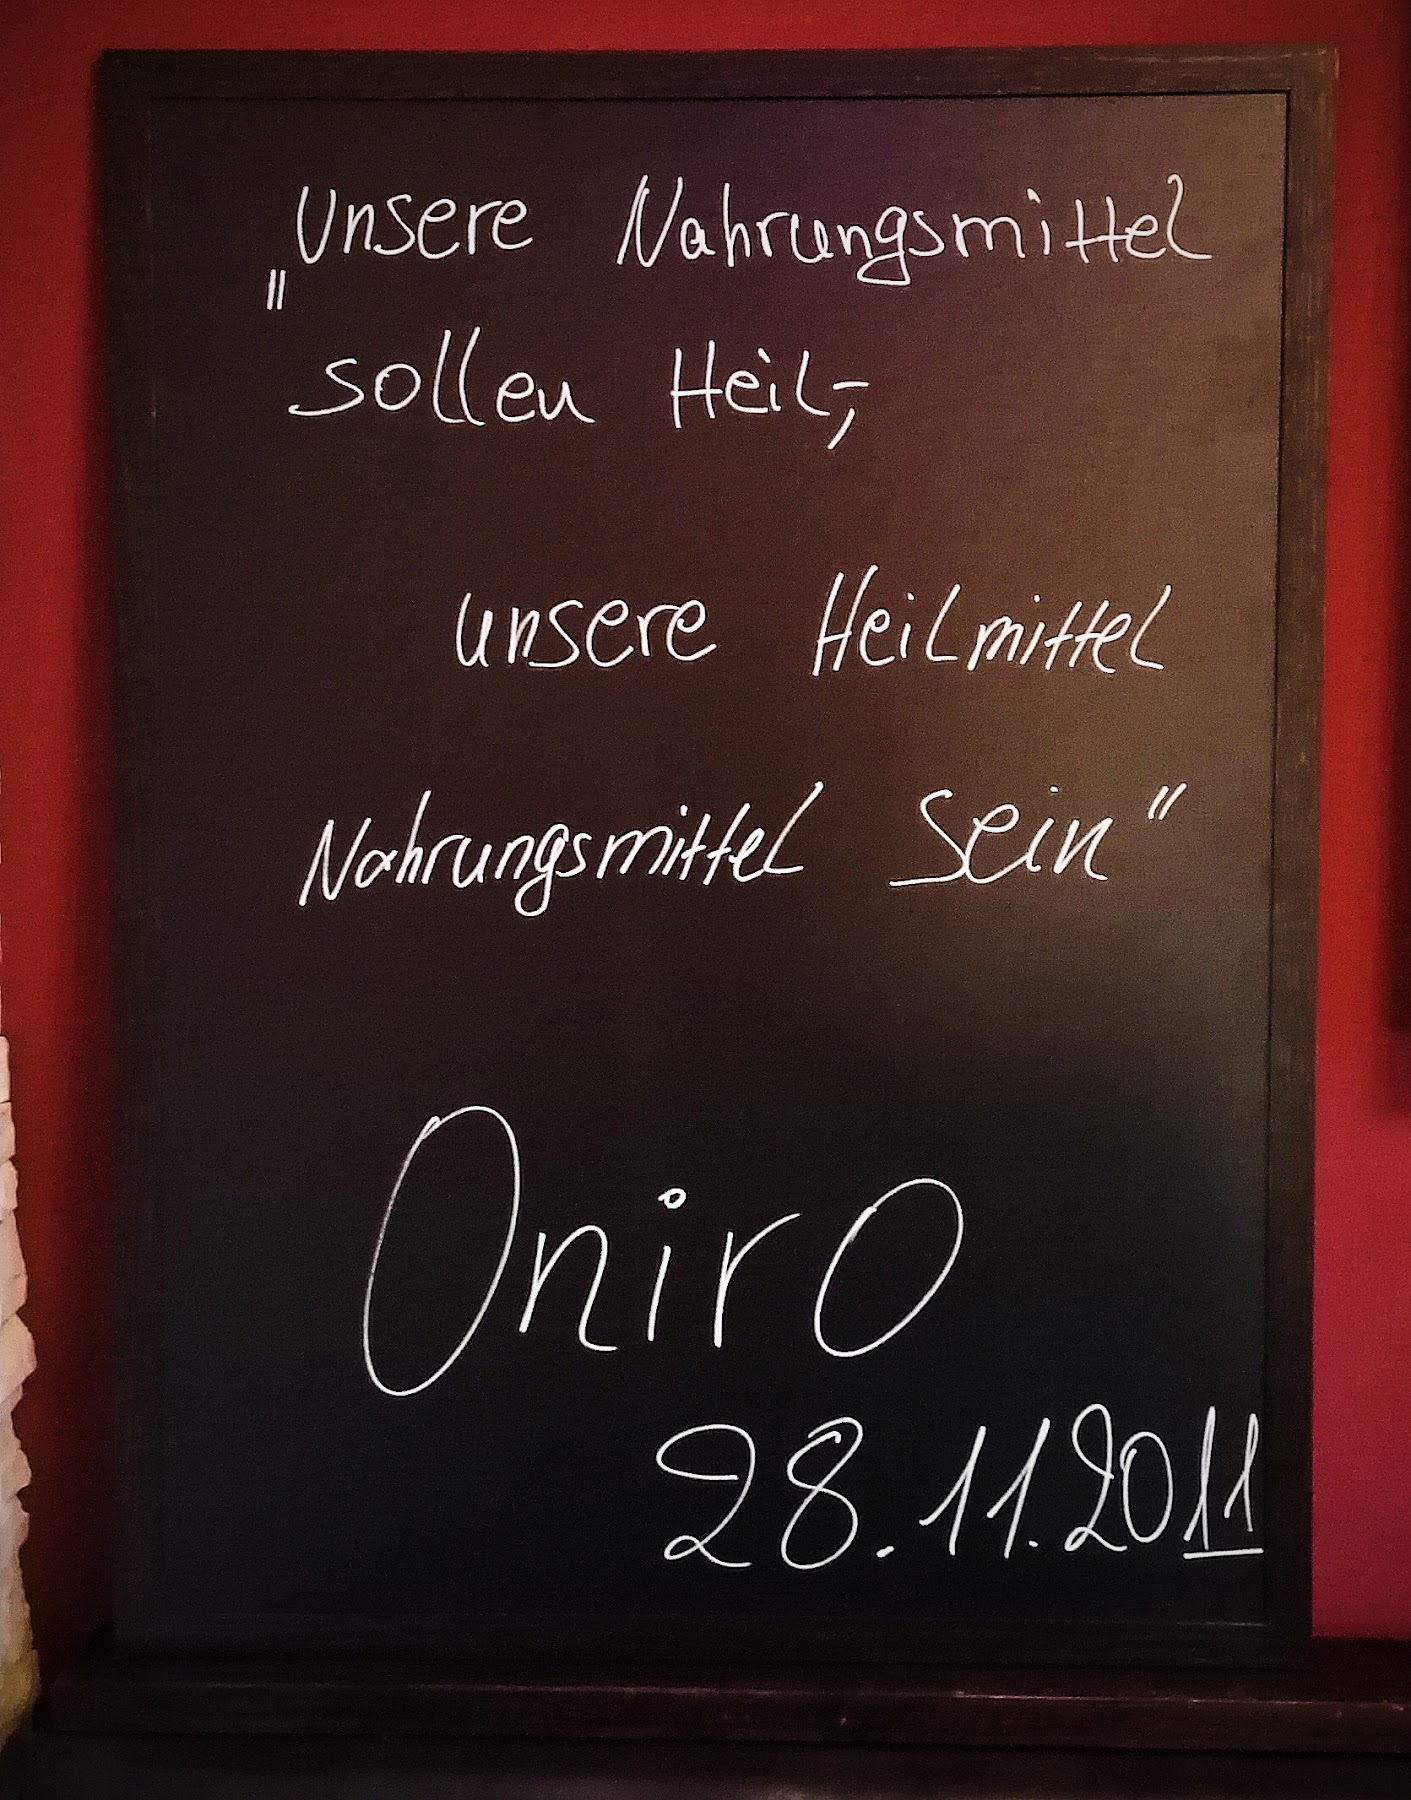 „Unsere Nahrungsmittel
sollen Heil-,
unsere Heilmittel
Nahrungsmittel sein“
Oniro
28.11.2011